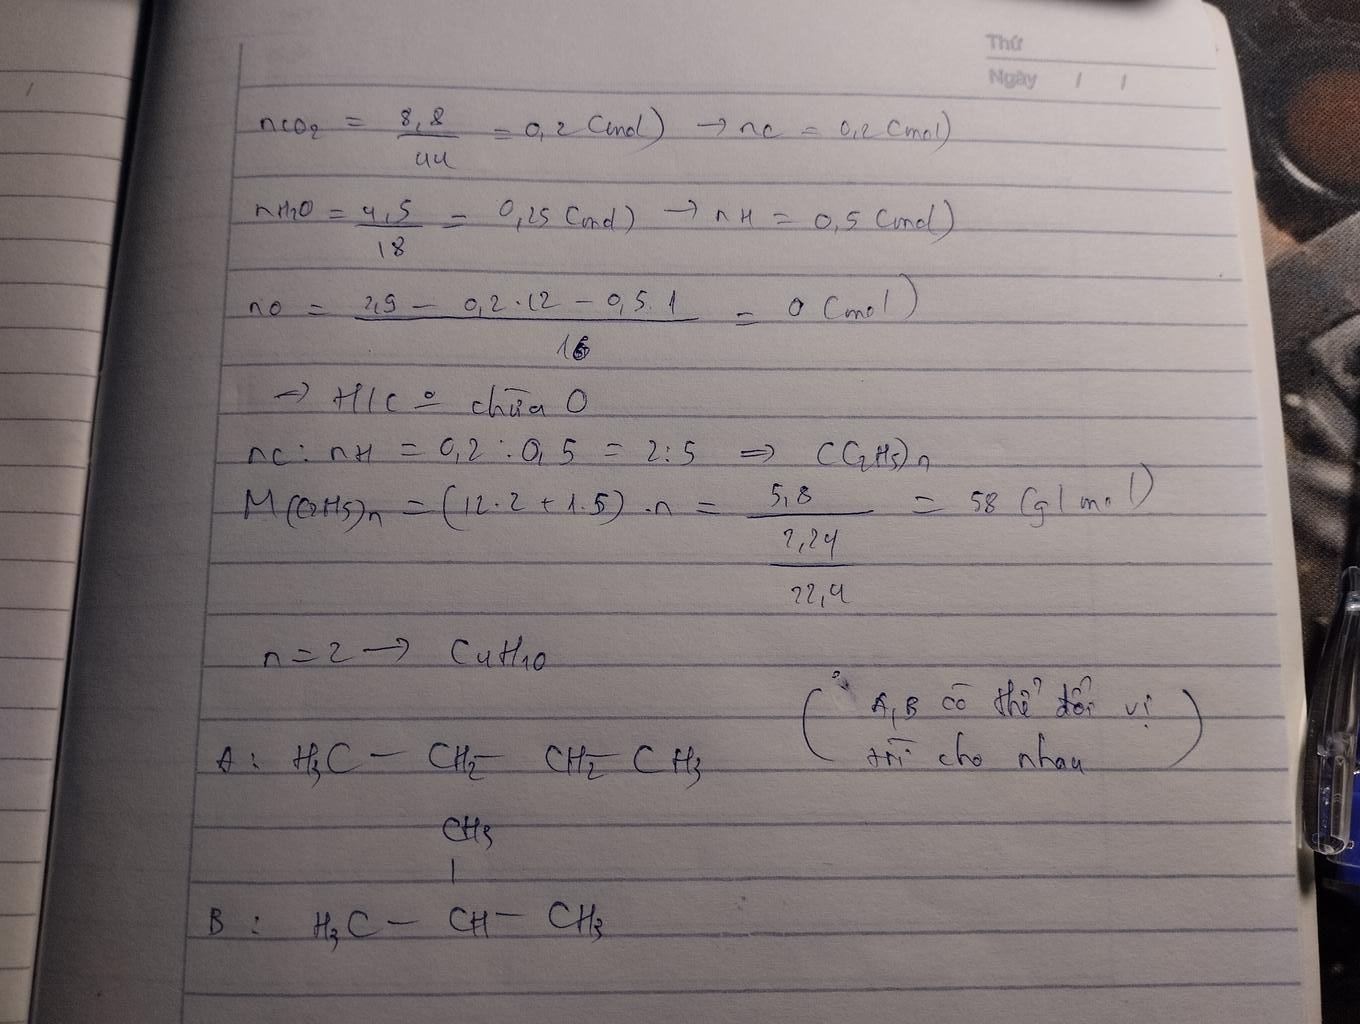 Thứ
Ngày / /
nCO2 = 8,8/44 = 0,2 (mol) → nC = 0,2 (mol)
nH2O = 4,5/18 = 0,25 (mol) → nH = 0,5 (mol)
nO = 2,9 - 0,2.12 - 0,5.1/16 = 0 (mol)
→ H/C o chứa O
nC : nH = 0,2 : 0,5 = 2:5 ⇒ (C2H5)n
M(C2H5)n = (12.2 + 1.5).n = 5,8/2,24/22,4 = 58 (g/mol)
n=2 → C4H10
(A,B có thể đổi vị
trí cho nhau)
A: H3C - CH2 - CH2 - CH3
CH3
|
B: H3C - CH - CH3